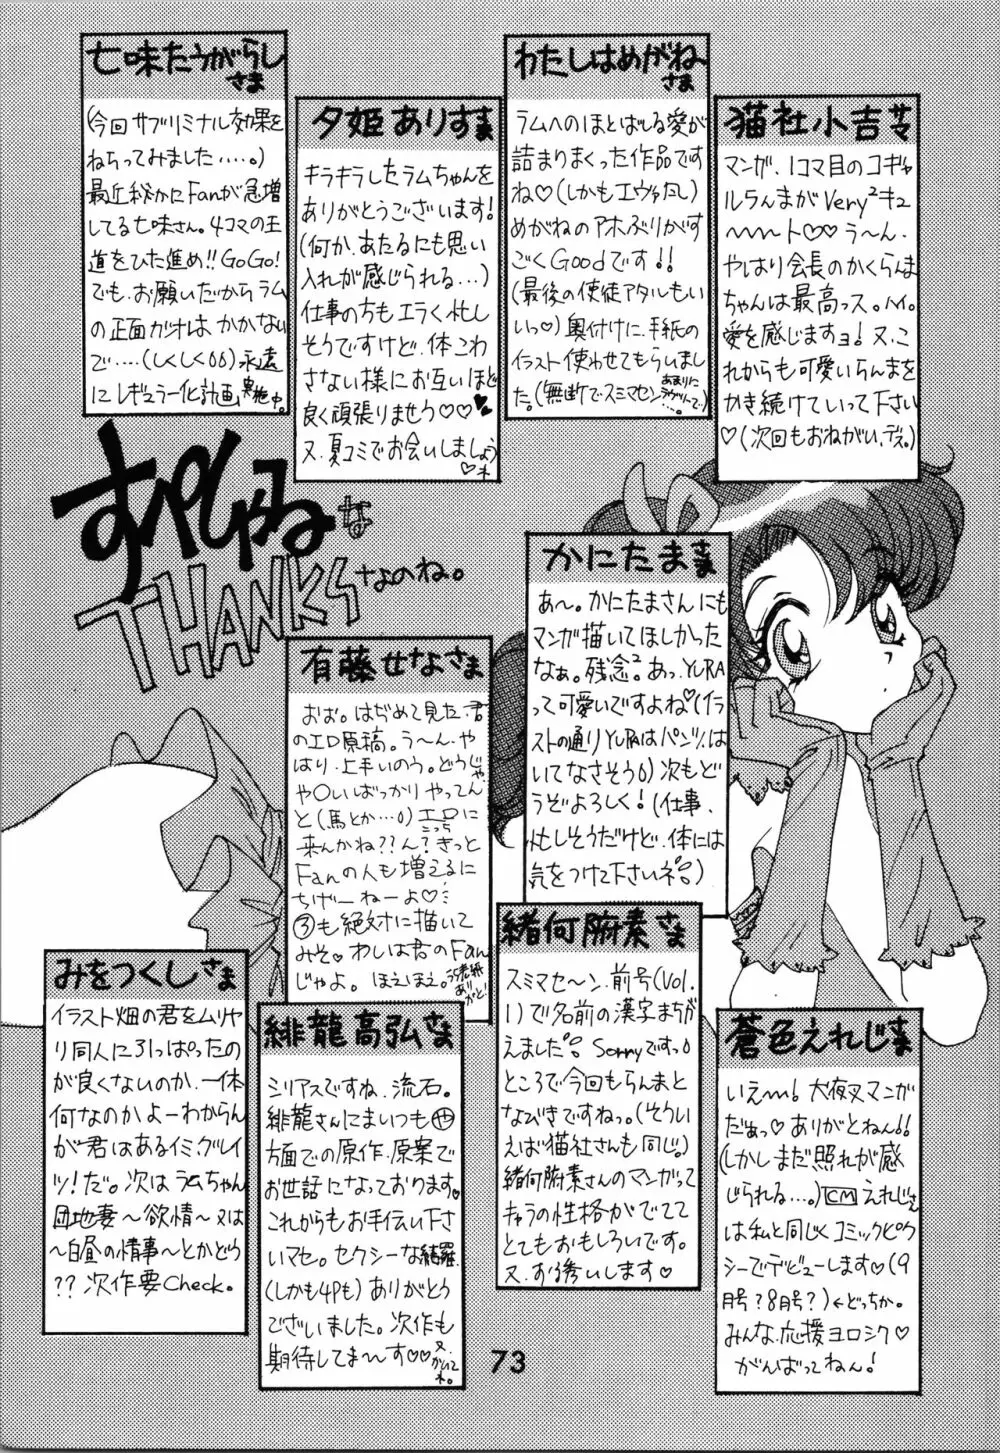 七味たうがらしさま
(今回サブリミナル効果を
ねらってみました‥‥‥。)
最近秘かにFanが急増
してる七味さん。4コマの王
道をひた進め!!GoGo!
でも、お願いだからラム
の正面ガオは、かかない
で‥‥(しくしく66)永遠
にレギュラー化計画実施中。
夕姫ありすさま
キラキラしたラムちゃんを
ありがとうございます!
(何か、あたるにも思い
入れが感じられる‥‥)
仕事の方もエラく忙し
そうですけど、体こわ
さない様にお互いほど
良く頑張りませう♡♡♥
又、夏コミでお会いしましょう
♡ネ
わたしはめがねさま
ラムへのほとばしる愛が
詰まりまくった作品です
ね♡(しかもエヴァだし)
めがねのアホぶりがす
ごくGoodです!!
(最後の使徒アタルもい
いっ♡)奥付けに、手紙の
イラスト使わせてもらいまし
た。(無断でスミマセンあまりに
猫社小吉サマ
マンガ、1コマ目のコギャ
ルらんまがVery²キュ
〜〜〜ト♡♡う〜ん、
やはり会長のかくらんま
ちゃんは最高っス。ハイ。
愛を感じますヨ!又、こ
れからも可愛いらんまを
かき続けていって下さい
♡(次回もおねがい、デス。)
すぺしゃるな
THANKSなのね。
かにたまさま
あ〜。かにたまさんにも
マンガ描いてほしかった
なぁ。残念²。あっ、YURA
って可愛いですよね♡(イラ
ストの通りYURAはパンツは
いてなさそう6)次もど
うぞよろしく!(仕事、
忙しそうだけど、体には
気をつけて下さいネ。)
有藤せなさま
おお。はぢめて見た、君
のエロ原稿。う〜ん、や
はり、上手いのう。どうじゃ、
や〇いばっかりやってん
と(馬とか…6)エロに
こっち
来んかね??ん?きっと
Fanの人も増えるに
ちげーねーよ♡
③も絶対に描いて
みそ。わしは君のFan
じゃよ。ほえほえ。うら表紙ありがと!
緒何腑素さま
スミマセ〜ン、前号(Vol.
1)で名前の漢字まちが
えました。Sorryですっ6
ところで今回もらんまと
なびきですねっ。(そうい
えば猫社さんも同じ。)
緒何腑素さんのマンガって
キャラの性格がでてて
とてもおもしろいです。
又、お誘いします♡
みをつくしさま
イラスト畑の君をムリヤ
リ同人に引っぱったの
が良くないのか、一体
何なのかよーわからん
が君はあるイミ、グレイ
ツ!だ。次はラムちゃん
団地妻〜欲情〜又は
〜白昼の情事〜とかどう
??次作要Check。
緋龍高弘さま
シリアスですね、流石。
緋龍さんにまいつも
方面での原作、原案で
お世話になっております。
これからもお手伝い下さ
いマセ。セクシーな結羅
(しかも4Pも)ありがとう
ございました。次作も
期待してま〜す♡♡又、かいてネ。
蒼色えれじさま
いえ〜〜!犬夜叉マンガ
だぁっ♡ありがとねん!!
(しかしまだ照れが感
じられる…。)CMえれじさん
は私と同じくコミックピク
シーでデビューします♡(9
月号?8月号?)←どっちか。
みんな、応援ヨロシク♡
がんばってねん!
73